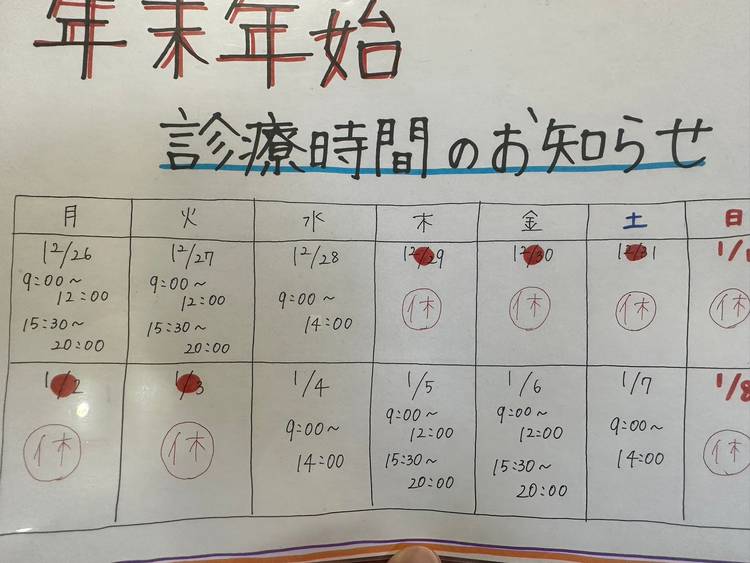 年末年始
診療時間のお知らせ
月 火 水 木 金 土 日
12/26 12/27 12/28 12/29 12/30 12/31 1/1
9:00~ 9:00~ 9:00~ 休 休 休 休
12:00 12:00 14:00
15:30~ 15:30~
20:00 20:00
1/2 1/3 1/4 1/5 1/6 1/7 1/8
休 休 9:00~ 9:00~ 9:00~ 9:00~ 休
14:00 12:00 12:00 14:00
15:30~ 15:30~
20:00 20:00